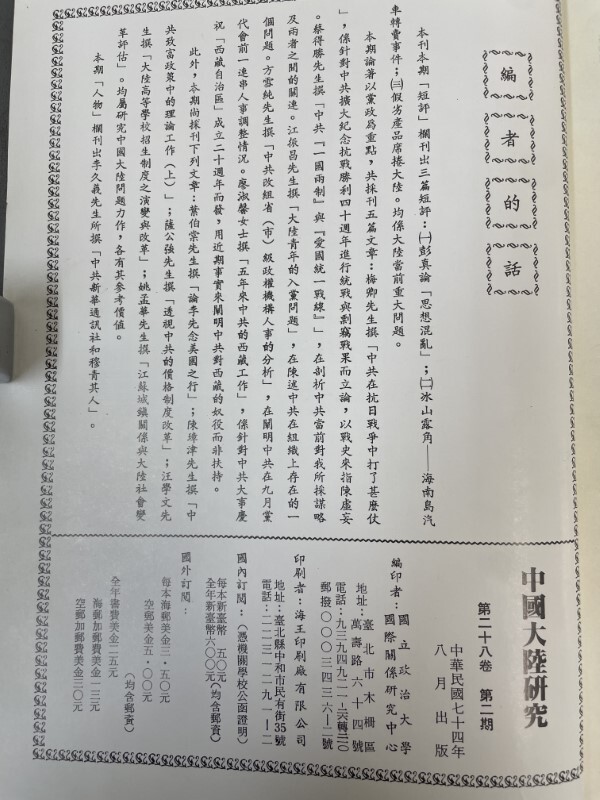 編者的話
本刊本期「短評」欄刊出三篇短評：㈠彭真論「思想混亂」；㈡冰山露角——海南島汽
車轉賣事件；㈢假劣產品席捲大陸。均係大陸當前重大問題。
本期論著以黨政爲重點，共採刊五篇文章：梅卿先生撰「中共在抗日戰爭中打了甚麼仗
」，係針對中共擴大紀念抗戰勝利四十週年進行統戰與剽竊戰果而立論，以戰史來指陳虛妄
。蔡得勝先生撰「中共『一國兩制』與『愛國統一戰線』」，在剖析中共當前對我所採謀略
及兩者之間的關連。江振昌先生撰「大陸青年的入黨問題」，在陳述中共在組織上存在的一
個問題。方雪純先生撰「中共改組省（市）級政權機構人事的分析」，在闡明中共在九月黨
代會前一連串人事調整情況。廖淑馨女士撰「五年來中共的西藏工作」，係針對中共大事慶
祝「西藏自治區」成立二十週年而發，用近期事實來闡明中共對西藏的奴役而非扶持。
此外，本期尚採刊下列文章：葉伯棠先生撰「論李先念美國之行」；陳璋津先生撰「中
共致富政策中的理論工作（上）」；薩公強先生撰「透視中共的價格制度改革」；汪學文先
生撰「大陸高等學校招生制度之演變與改革」；姚孟華先生撰「江蘇城鎮關係與大陸社會變
革評估」。均屬研究中國大陸問題力作，各有其參考價値。
本期「人物」欄刊出李久義先生所撰「中共新華通訊社和穆青其人」。
中國大陸研究
第二十八卷 第二期
中華民國七十四年
八月出版
編印者：國立政治大學
國際關係研究中心
地址：臺北市木柵區
萬壽路六十四號
電話：九三九四九二一—六轉二〇
郵撥〇〇〇三四三六—二號
印刷者：海王印刷廠有限公司
地址：臺北縣中和市民有街35號
電話：二二三一二九一—二
國內訂閱：（憑機關學校公函證明）
每本新臺幣 五〇元
全年新臺幣六〇〇元（均含郵資）
國外訂閱：
每本海郵美金三・五〇元
空郵美金五・〇〇元
（均含郵資）
全年書費美金二五元
海郵加郵費美金一三元
空郵加郵費美金三〇元